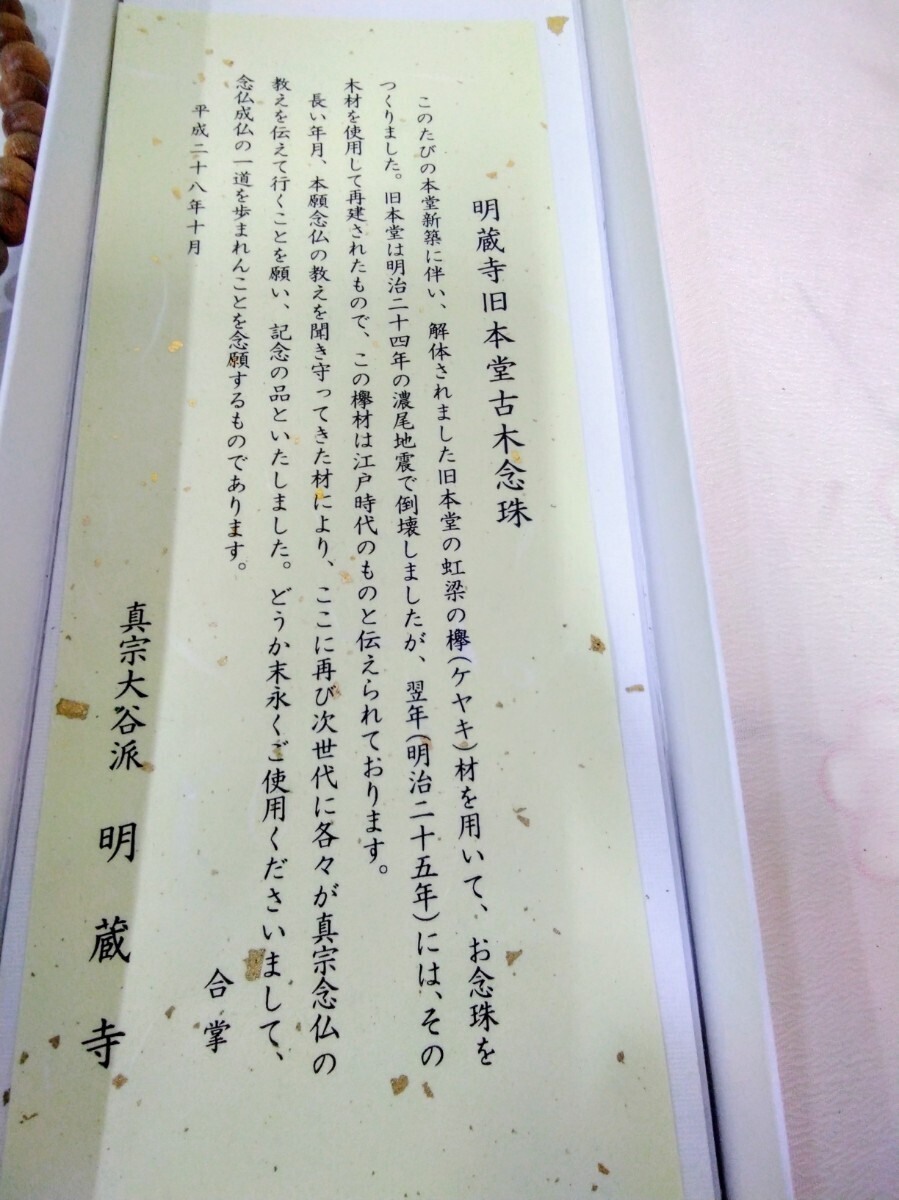 明蔵寺旧本堂古木念珠
このたびの本堂新築に伴い、解体されました旧本堂の虹梁の欅(ケヤキ)材を用いて、お念珠を
つくりました。旧本堂は明治二十四年の濃尾地震で倒壊しましたが、翌年(明治二十五年)には、その
木材を使用して再建されたもので、この欅材は江戸時代のものと伝えられております。
長い年月、本願念仏の教えを聞き守ってきた材により、ここに再び次世代に各々が真宗念仏の
教えを伝えて行くことを願い、記念の品といたしました。どうか末永くご使用くださいまして、
念仏成仏の一道を歩まれんことを念願するものであります。
合掌
平成二十八年十月
真宗大谷派 明蔵寺